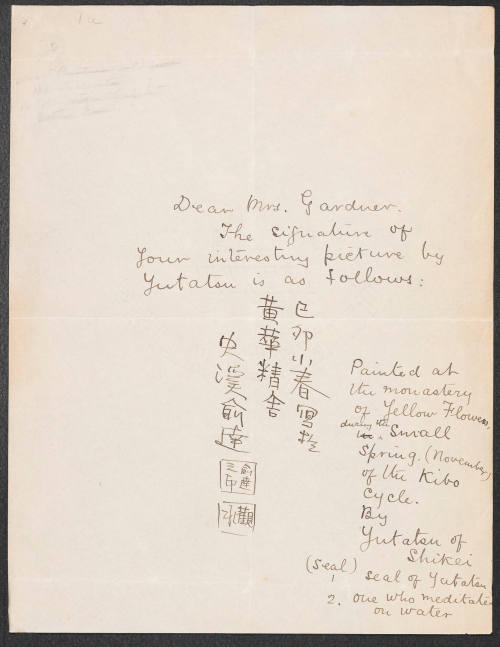 Dear Mrs. Gardner.
The signature of
your interesting picture by
Yutatsu is as follows:
己卯小春寫於
黄華精舎
史溪俞達
俞達
之印
觀水
Painted at
the monastery
of Yellow Flowers,
during the
Small
Spring. (November)
of the Kibo
Cycle.
By
Yutatsu of
Shikei
(Seal)
1 seal of Yutatsu
2. one who meditates
on water